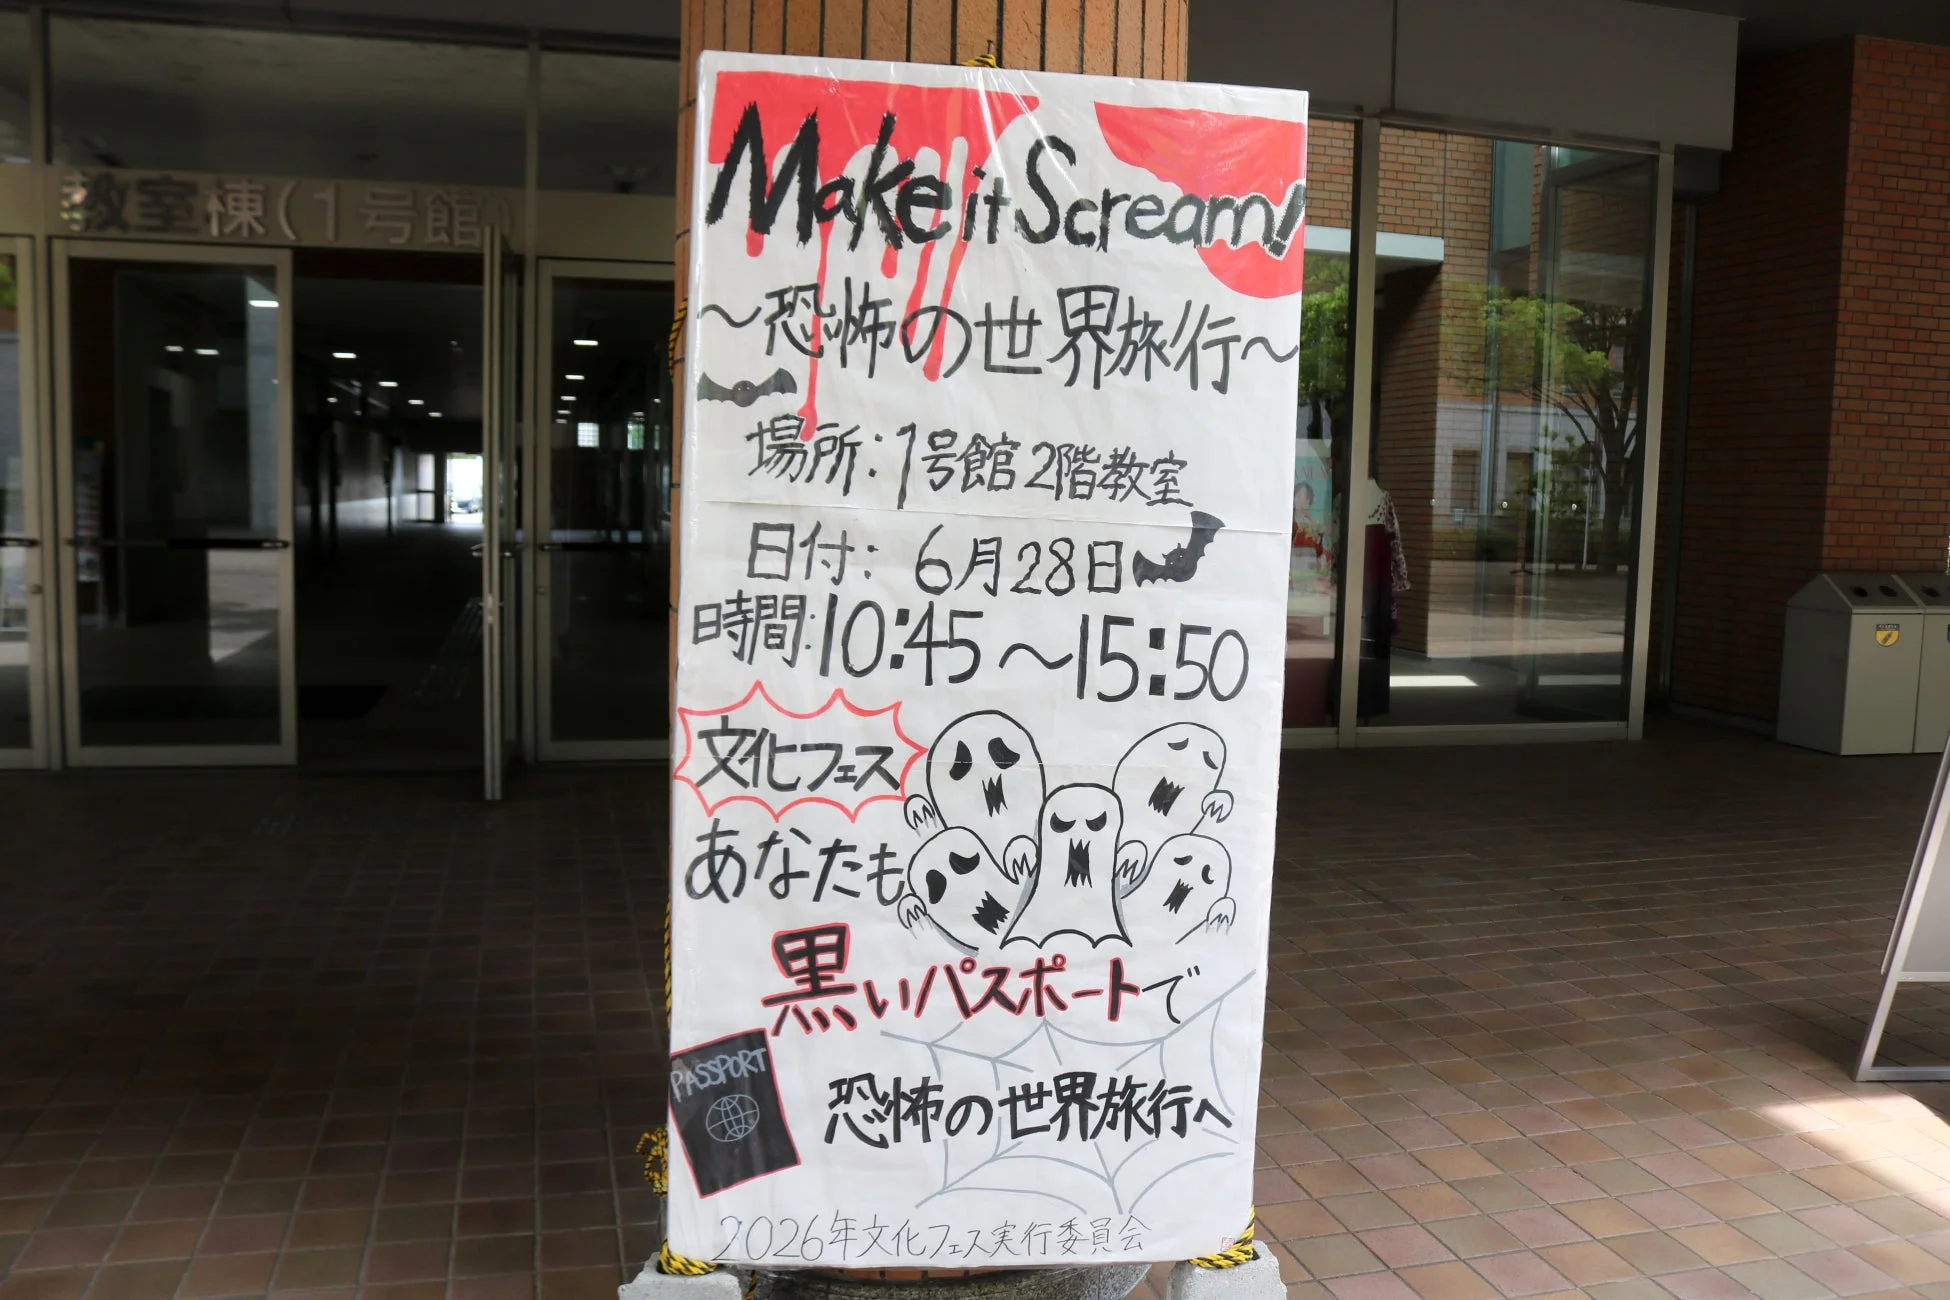 教室棟(1号館)
Make it Scream!
～恐怖の世界旅行～
場所:1号館2階教室
日付:6月28日
時間:10:45～15:50
文化フェス
あなたも
黒いパスポートで
PASSPORT
恐怖の世界旅行へ
2026年文化フェス実行委員会